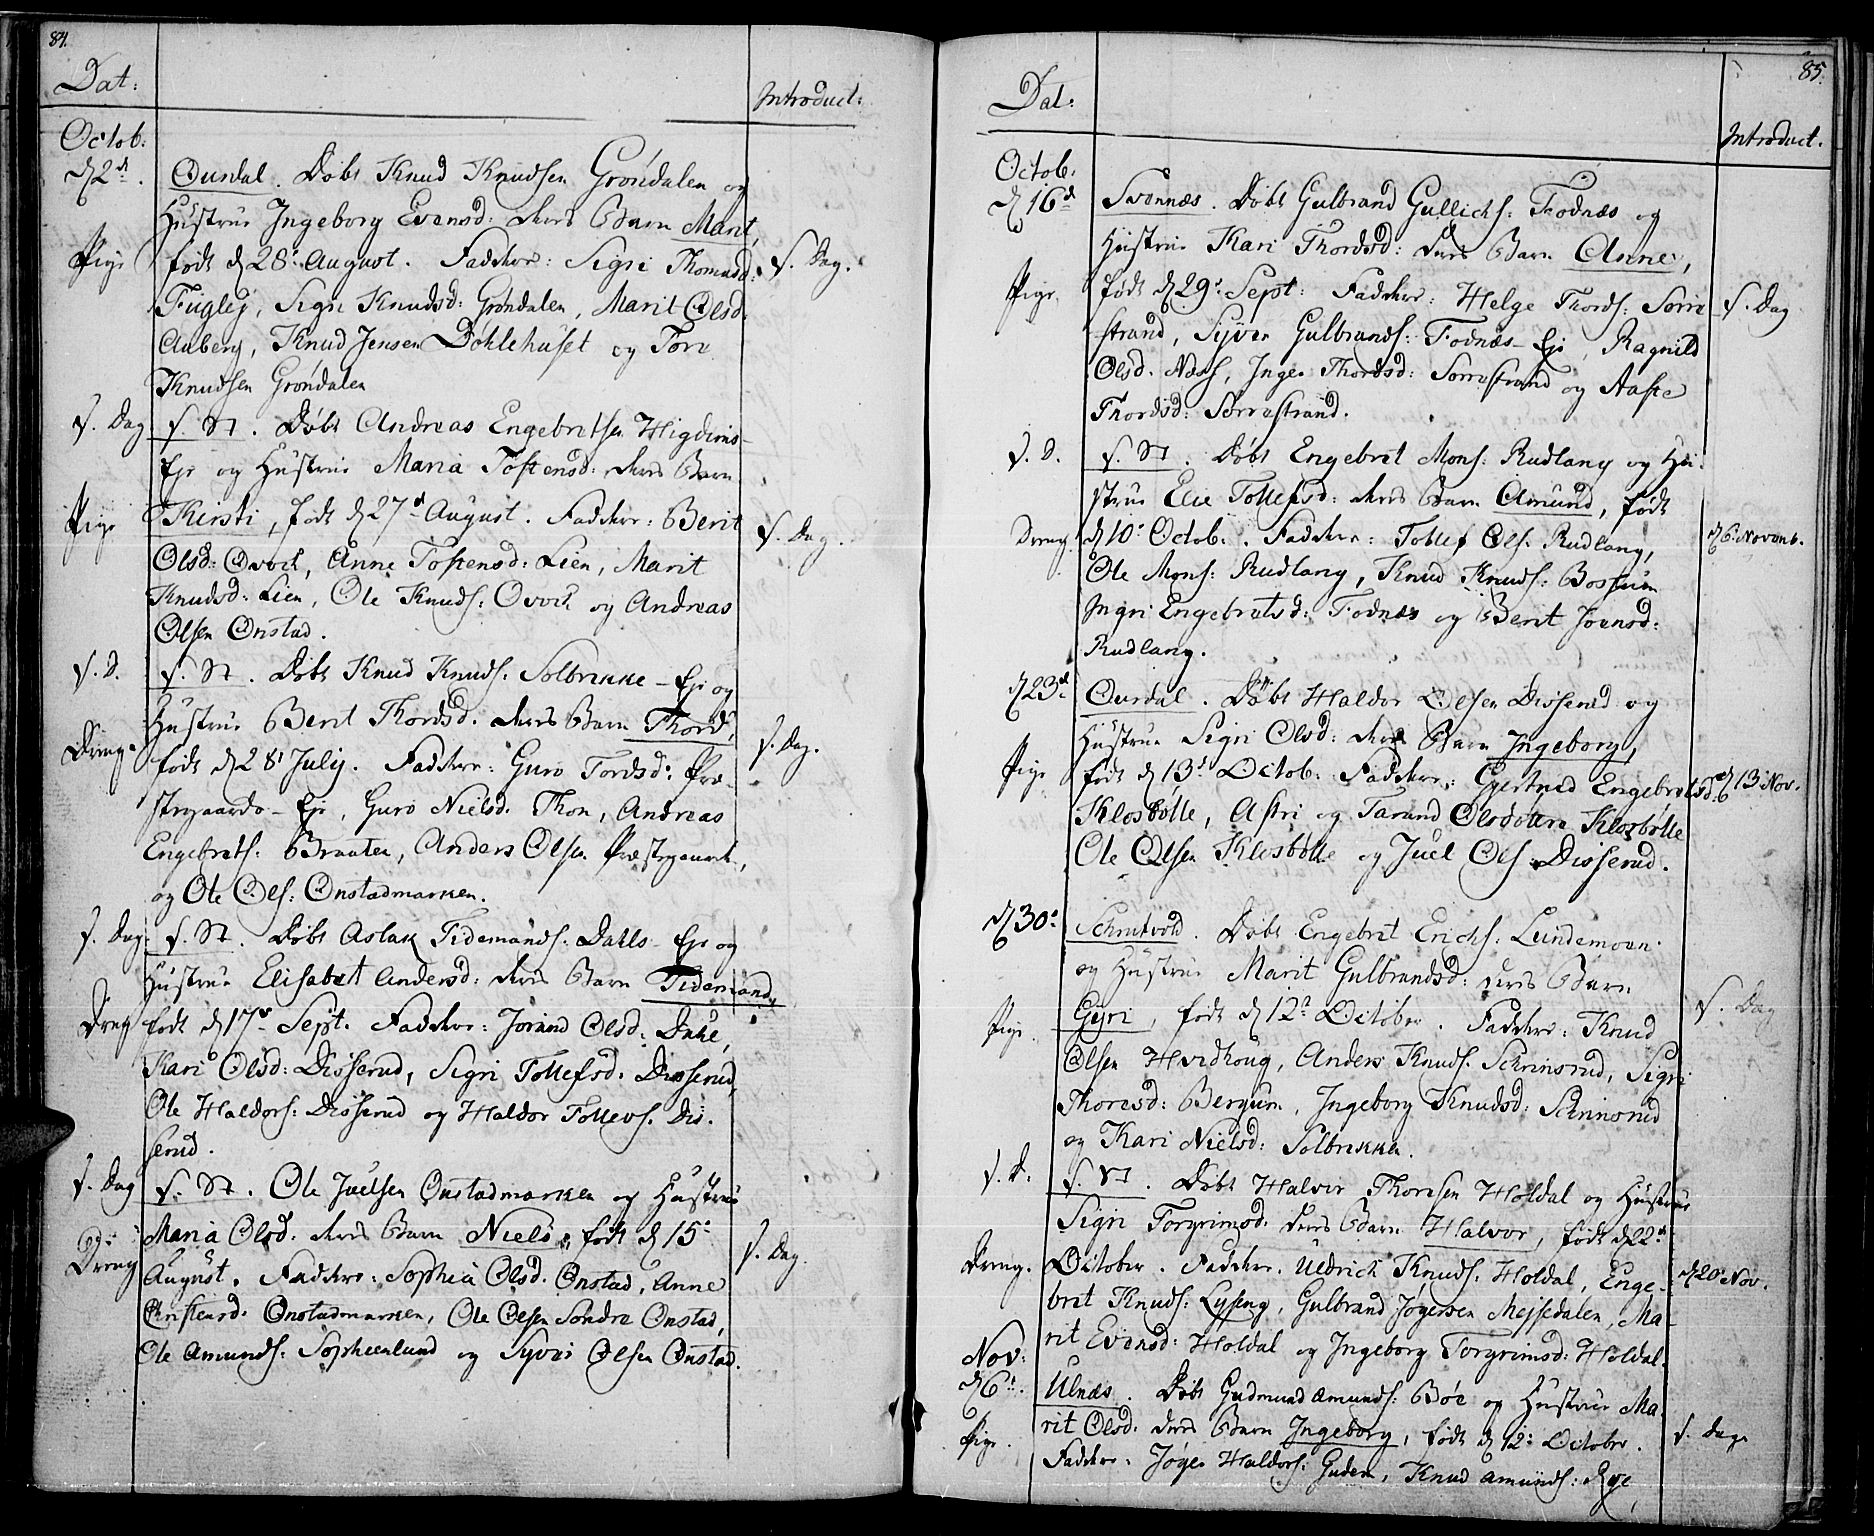 84.
Dat:
Introduct:
Octob:
d 2d.
Ourdal. Døbt Knud Knudsen Grøndalen og
Hustrue Ingeborg Evensd: deres Barn Marit,
Pige
født d 28. August. Fadder: Sigri Thomasd:
s. Dag.
Fuglej, Sigri Knudsd: Grøndalen, Marit Olsd.
Auberg, Knud Jensen Døhlehuset og Tore
Knudsen Grøndalen
s. Dag
s. St. Døbt Andreas Engebretsen Higdims-
Eje og Hustrue Maria Tostensd: deres Barn
Pige
Kirsti, født d 27d August. Fadder: Berit
s. Dag.
Olsd: Qvock, Anne Tostensd: Lien, Marit
Knudsd: Lien, Ole Knuds: Qvock og Andreas
Olsen Onstad.
s. D.
s. St. Døbt Knud Knuds. Solbrekke-Eje og
Hustrue Berit Thordsd. deres Barn Thord,
Dreng
født d 28 July. Fadder: Guro Tordsd: Præ-
s. Dag.
stegaards-Eje, Guro Nielsd. Thon, Andreas
Engebrets: Braaten, Anders Olsen Præstegaard,
og Ole Ols: Onstadmarken.
s. Dag.
s. St. Døbt Aslak Tidemands. Dahls-Eje og
Hustrue Elisabet Andersd: deres Barn Tidemand,
Dreng
født d 17 Sept. Fadder: Jorand Olsd. Dahle,
Kari Olsd: Disserud, Sigri Tollefsd. Disserud,
Ole Haldors: Disserud og Haldor Tollevs. Dis-
serud.
s. Dag
s. St. Ole Juelsen Onstadmarken og Hustrue
Maria Olsd: deres Barn Niels, født d 15.
Dreng
s. Dag.
August. Fadder: Sophia Olsd. Onstad, Anne
Christensd. Onstadmarken, Ole Olsen Søndre Onstad,
Ole Amunds: Sopheenlund og Syver Olsen Onstad.
85.
Dat:
Introduct.
Octob.
d 16d
Svennæs. Døbt Gulbrand Gullichs: Fodnæs og
Hustrue Kari Thordsd: deres Barn Anne,
Pige.
født d 29. Sept: Fadder: Helge Thords: Sørre-
s. Dag
strand, Syver Gulbrands: Fodnæs-Eje, Ragnild
Olsd. Næss, Inger Thordsd: Sørrestrand og Aaste
Thordsd: Sørrestrand.
s. D.
s. St. Døbt Engebret Mons: Rudlang og Hu-
strue Elie Tollefsd: deres Barn Amund, født
Dreng.
d 10. Octob. Fadder: Tollef Ols. Rudlang,
d 6. Novemb.
Ole Mons: Rudlang, Knud Knuds:
Ingri Engebretsd: Fodnæs og Berit Joensd:
Rudlang.
d 23d
Ourdal. Døbt Haldor Olsen Disserud og
Hustrue Sigri Olsd: deres Barn Ingeborg,
Pige
født d 13. Octob: Fadder: Gjertrud Engebretsd.
d 13. Nov.
Klosbølle, Astri og Tarand Olsdøttre Klosbølle
Ole Olsen Klosbølle og Juel Ols: Disserud.
d 30.
Schrutvold. Døbt Engebret Erichs: Lundemoen
og Hustrue Marit Gulbrandsd: deres Barn
Pige.
Gyri, født d 12. October. Fadder: Knud
s. Dag
Olsen Hvidhoug, Anders Knuds. Schrinsrud, Sigri
Thoresd: Bergum, Ingeborg Knudsd: Schrinsrud
og Kari Nielsd: Solbrekken.
s. D.
s. St. Døbt Halvor Thoresen Holdal og Hustrue
Sigri Torgrimsd: deres Barn Halvor, født d 22d
Dreng.
October. Fadder. Uldrich Knuds. Holdal, Enge-
d 20. Nov.
bret Knuds: Lyseng, Gulbrand Jøgersen Mejsedalen, Ma-
rit Evensd: Holdal og Ingeborg Torgrimsd: Holdal.
Nov:
d 6.
Ulnæs. Døbt Gudmund Amunds: Bøe og Hustrue Ma-
rit Olsd: deres Barn Ingeborg, født d 12: October.
Pige.
s. Dag.
Fadder. Jøger Haldors: Guden, Knud Amunds: Rye,